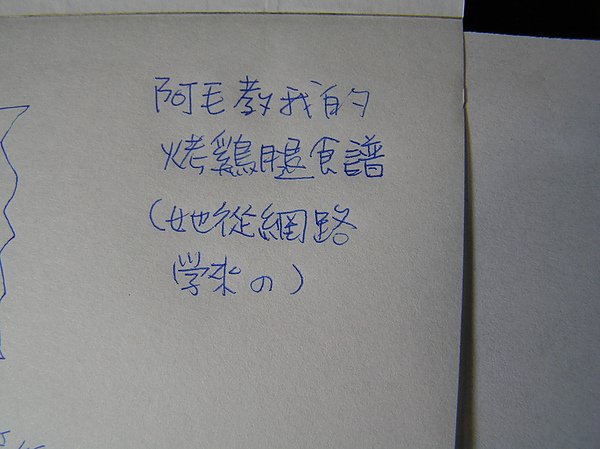 阿毛教我的
烤鷄腿食譜
(她從網路
学來の)